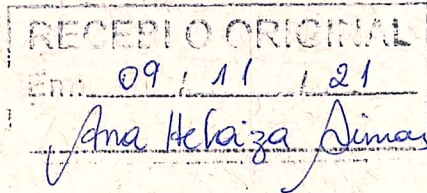 RECEBI O ORIGINAL
Em: 09 / 11 / 21
Ana Heloiza Dimas